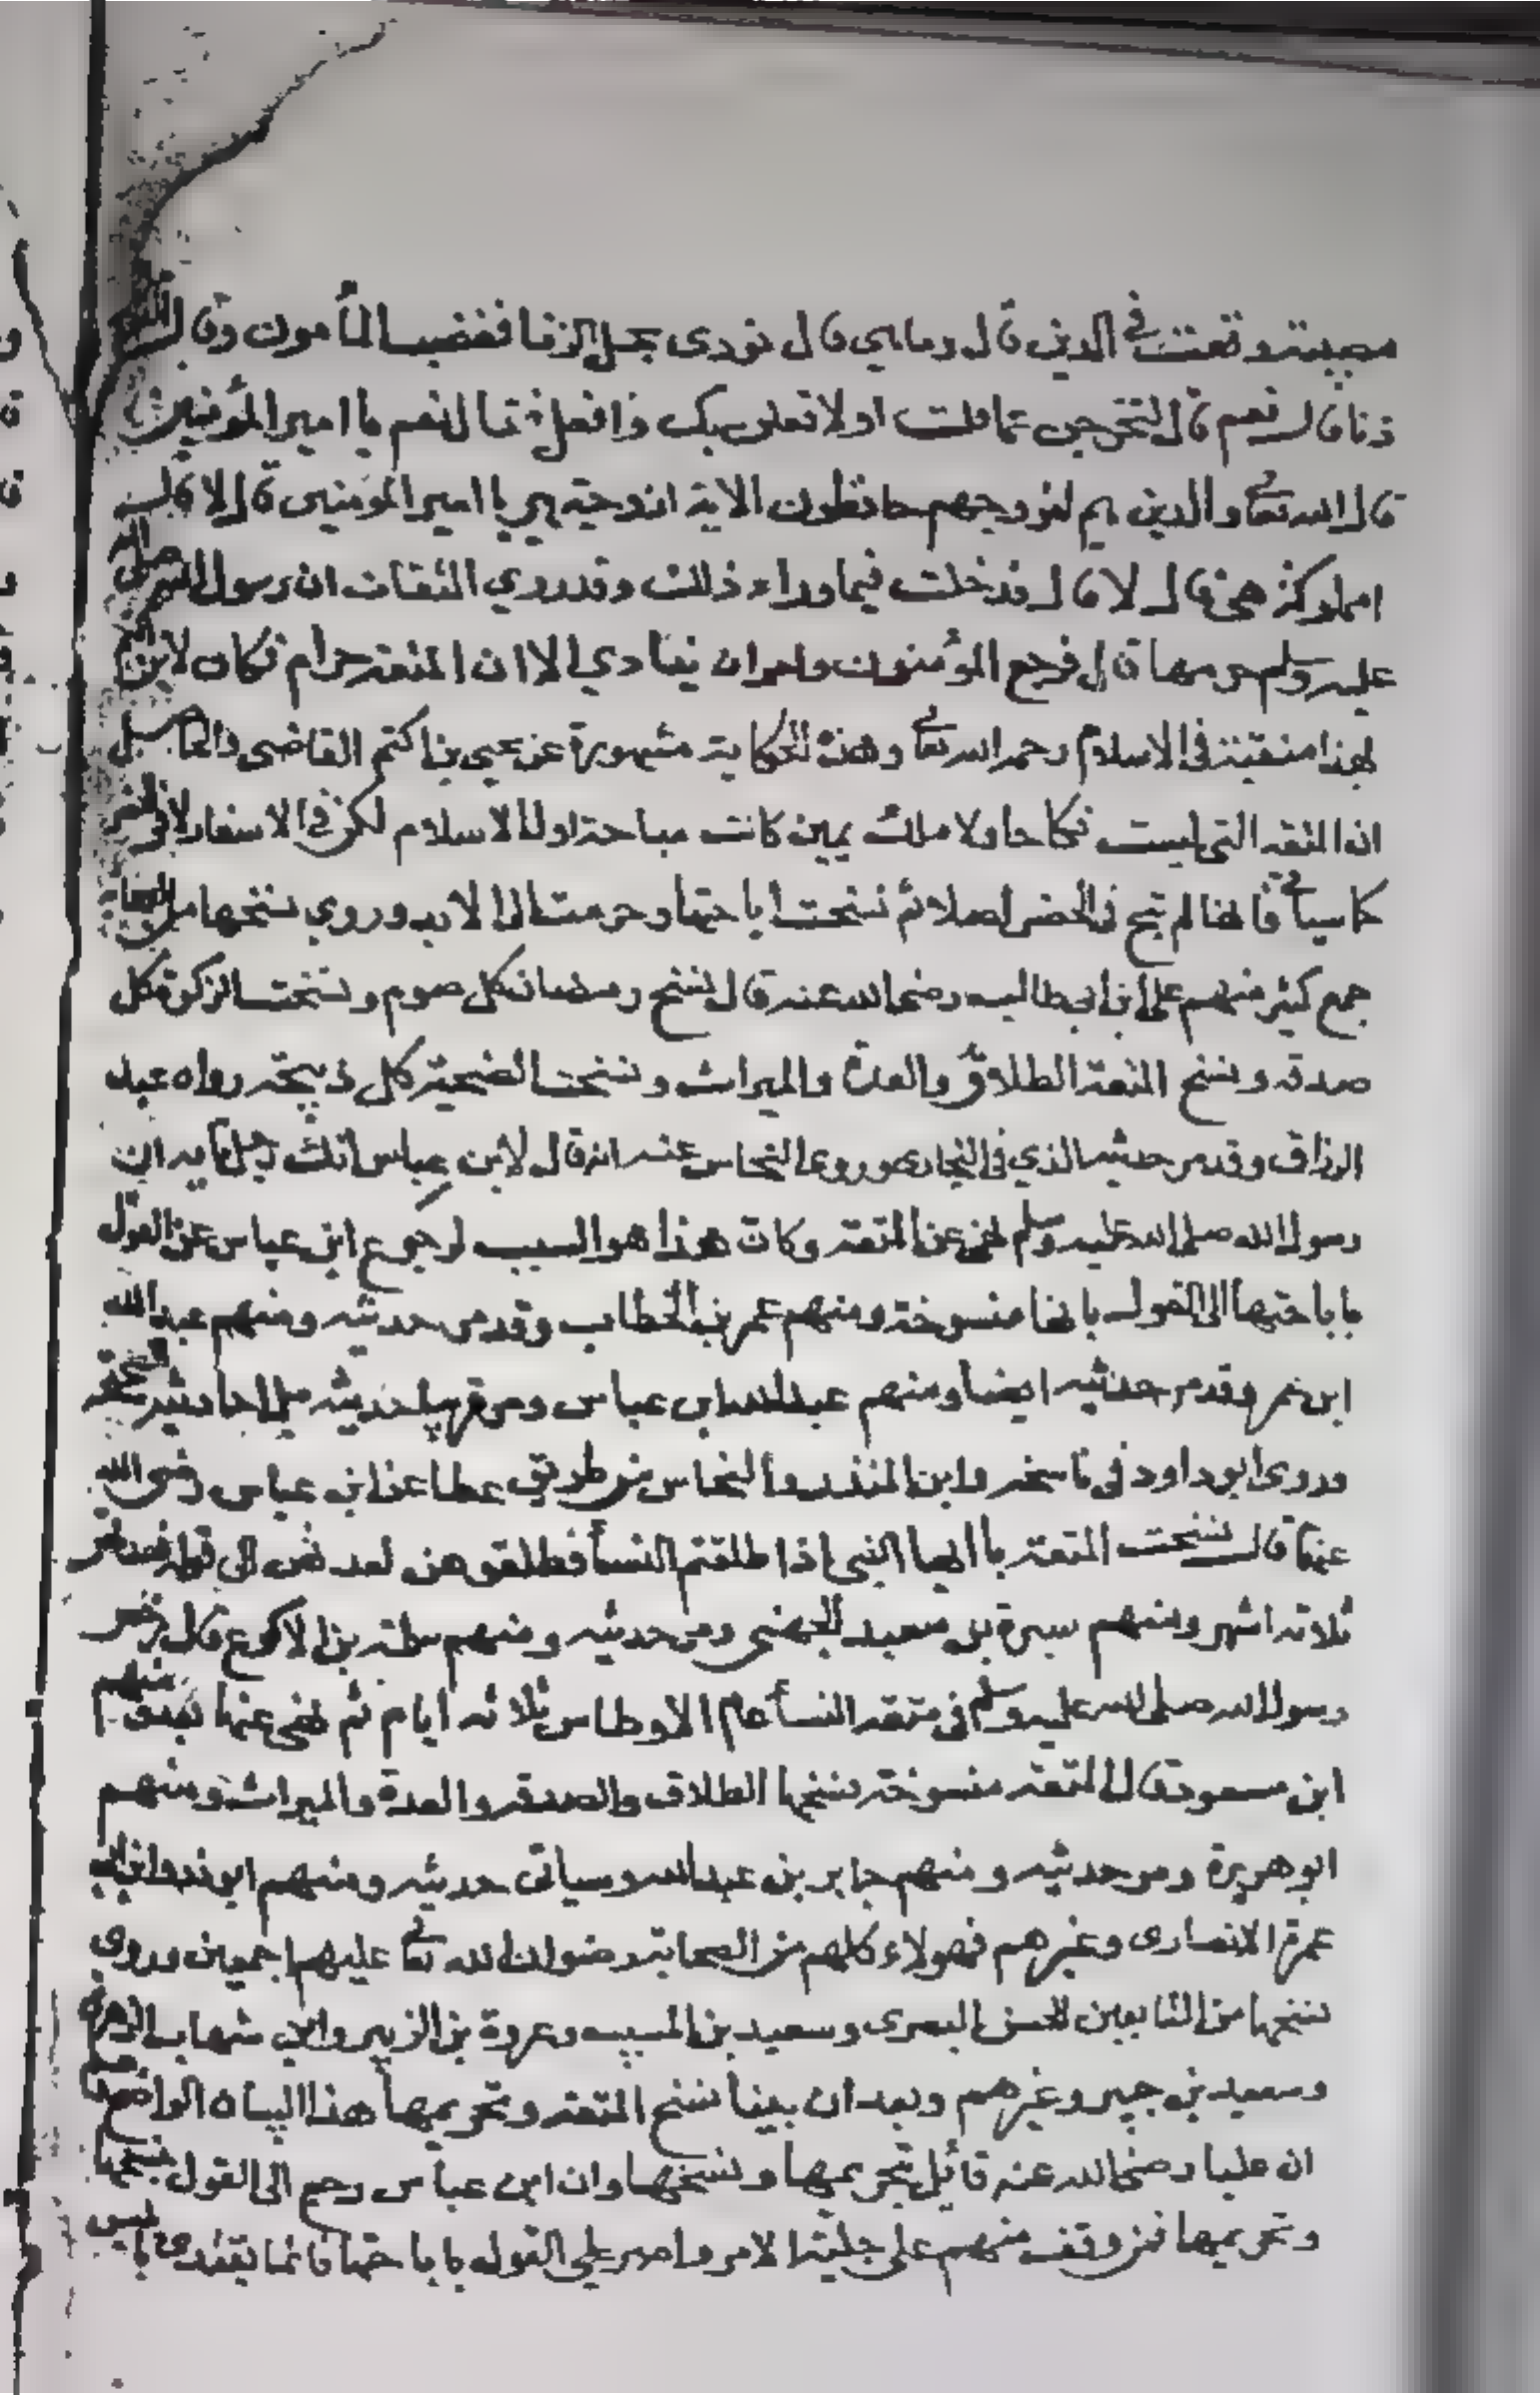 مصيبة وقعت في الدين قال وما هي قال نودي بحل الزنا فغضب المأمون وقال
زنا قال نعم قال لتخرجن مما قلت او لا فعلن بك وافعل فقال نعم يا امير المؤمنين
قال الله تعا والذين هم لفروجهم حافظون الاية ازوجة هي يا امير المؤمنين قال لا قال
امملوكة هي قال لا قال فدخلت فيما وراء ذلك وقد روي الثقات ان رسول الله صلى الله
عليه وسلم حرمها قال فرجع المؤمنون وامر ان ينادي الا ان المتعة حرام فكان لابن اكثم
بهذا منقبة في الاسلام رحمه الله تعا وهذه الحكاية مشهورة عن يحيى بن اكتم القاضى فالحاصل
ان المتعه التي ليست نكاحا ولا ملك يمين كانت مباحة اول الاسلام لكن في الاسفار لا في الحضر
كما سيأتي فانها لم تبح في الحضر اصلا ثم نسخت اباحتها وحرمت الى الابد وروي نسخها من الصحابة
جمع كثير منهم على ابن ابي طالب رضى الله عنه قال نسخ رمضان كل صوم ونسخت الزكوة كل
صدقه ونسخ المتعة الطلاق والعدة والميراث ونسخت الضحية كل ذبيحة رواه عبد
الرزاق وقد مر حديثه الذي في البخارى وروى النحاس عنه انه قال لابن عباس انك رجل تايه ان
رسول الله صلى الله عليه وسلم نهى عن المتعة وكان هذا هو السبب لرجوع ابن عباس عن القول
باباحتها الى القول بانها منسوخة ومنهم عمر بن الخطاب وقد مر حديثه ومنهم عبد الله
ابن عمر وقد مر حديثه ايضا ومنهم عبد الله ابن عباس ومر قريبا حديثه
وروى ابو داود في ناسخه وابن المنذر والنحاس من طريق عطا عن ابن عباس رضى الله
عنهما قال نسخت المتعة يا ايها النبي اذا طلقتم النسأ فطلقوهن لعدتهن الى قوله فعدتهن
ثلاثه اشهر ومنهم سبرة بن معبد الجهني ومر حديثه ومنهم سلمة بن الاكوع قال رخص
رسول الله صلى الله عليه وسلم في متعة النسأ عام الاوطاس ثلاثه ايام ثم نهى عنها بعد ومنهم
ابن مسعود قال المتعة منسوخة نسخها الطلاق والصدقة والعدة والميراث ومنهم
ابو هريرة ومر حديثه ومنهم جابر بن عبد الله وسياتى حديثه ومنهم ابو ذر وابن ابي
عمرة الانصارى وغيرهم فهولاء كلهم من الصحابة رضوان الله تعا عليهم اجمعين وروى
نسخها من التابعين الحسن البصرى وسعيد بن المسيب وعروة بن الزبير وابن شهاب الزهري
وسعيد بن جبير وغيرهم وبعد ان بينا نسخ المتعة وتحريمها هذا البيان الواضح
ان عليا رضى الله عنه قائل بتحريمها ونسخها وان ابن عباس رجع الى القول بنسخها
وتحريمها فمن وقف منهم على جلية الامر واصر على القول باباحتها فانما يقتدى بابليس